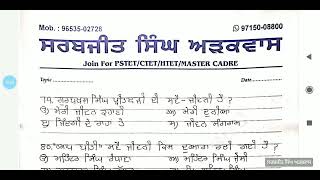 Mob. : 96535-02728
97150-08800
ਸਰਬਜੀਤ ਸਿੰਘ ਅੜਕਵਾਸ
Join For PSTET/CTET/HTET/MASTER CADRE
Topic
Date
79. ਗੁਰਬਖਸ਼ ਸਿੰਘ ਪ੍ਰੀਤਲੜੀ ਦੀ ਸਵੈ-ਜੀਵਨੀ ਹੈ ?
ੳ) ਮੇਰੀ ਜੀਵਨ ਕਹਾਣੀ ਅ) ਮੇਰੀ ਦੁਨੀਆ
ੲ) ਜ਼ਿੰਦਗੀ ਦੇ ਰਾਹ ਤੇ ਸ) ਜੀਵਨ ਸੰਗਰਾਮ
80. ਆਪ ਬੀਤੀ ਸਵੈ ਜੀਵਨੀ ਕਿਸ ਦੁਆਰਾ ਰਚੀ ਗਈ ਹੈ ?
ਸਰਬਜੀਤ ਸਿੰਘ ਅੜਕਵਾਸ